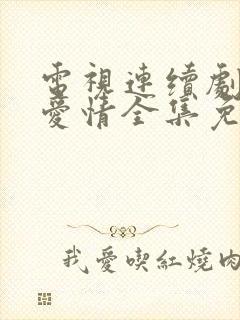 電視連續劇
愛情全集免
我愛喫紅燒肉